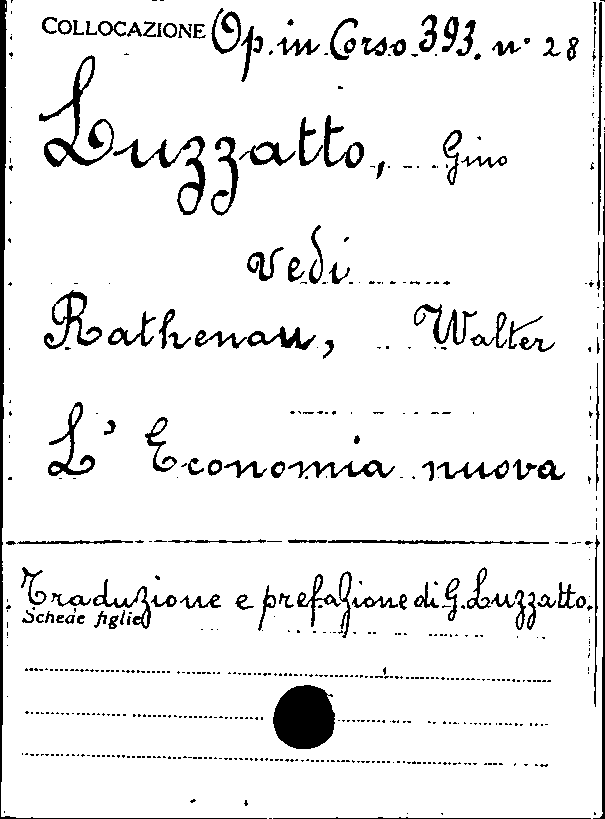 COLLOCAZIONE Op. in Corso 393. n° 28
Luzzatto, Gino
vedi
Rathenau, Walter
L' Economia nuova
Traduzione e prefazione di G. Luzzatto.
Schede figlie